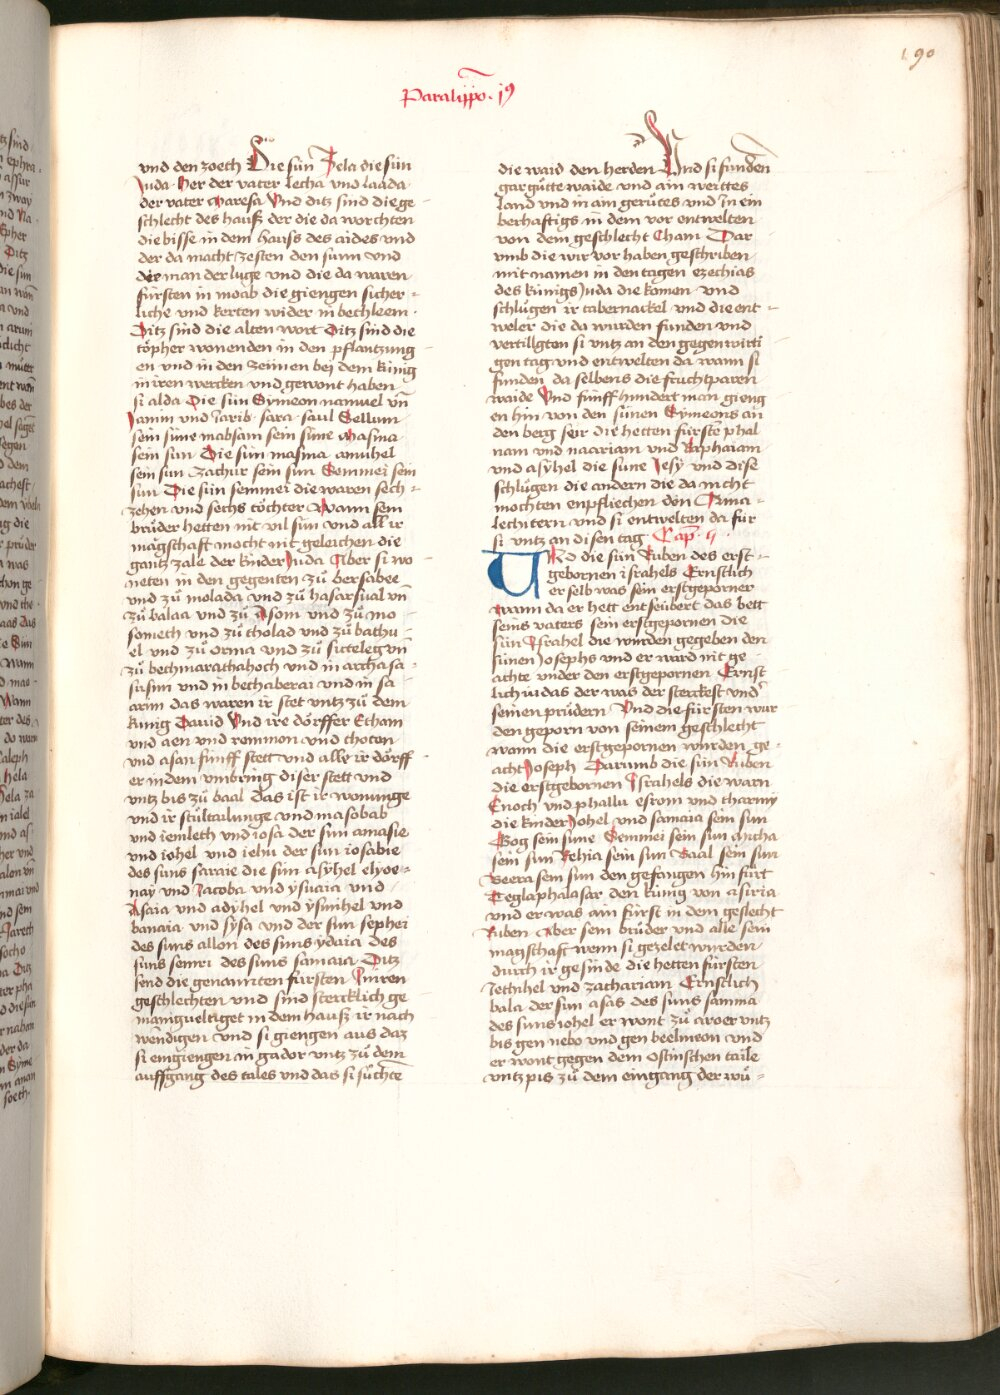 190
Paralippo. j9
vnd den zoech Die sün Sela die sün
Juda Her der vater lecha vnd laada
der vater Maresa Vnd ditz sind die ge-
schlecht des hauß der die da worchten
die bisse in dem hauss des aides vnd
der da macht zesten den sunn vnd
der man der luge vnd die da waren
fürsten in moab die giengen sicher-
liche vnd kerten wider in bechleem
Ditz sind die alten wort Ditz sind die
töpher wonenden in den pflantzung
en vnd in den zeünen bei dem künig
in iren wercken vnd gewont haben
si alda Die sün Symeon namuel vn̄
Jamin vnd Jarib sara saul Sellum
sein süne mabsam sein süne Masma
sein sun Die sün masma amuhel
sein sun zachur sein sun Semmei sein
sun Die sün semmei die waren sech-
zehen vnd sechs töchter Wann sein
brüder hetten nit vil sün vnd all ir
magschaft mocht nit geleichen die
gantz zale der kinder Juda Aber si wo
neten in den gegenten zů bersabee
vnd zů molada vnd zů hasarsual vn̄
zů balaa vnd zů Asom vnd zů mo
somech vnd zů tholad vnd zů bathu-
el vnd zů orma vnd zů siceleg vn̄
zů bechmarathahoch vnd in archasa-
susim vnd in bechaberai vnd in sa
arim das waren ir stet vntz zů dem
künig Dauid Vnd ire dörffer Etham
vnd aen vnd remmon vnd thoten
vnd asan fünff stett vnd alle ir dörff
er in dem vmbring diser stett vnd
vntz bis zů baal das ist ir wonunge
vnd ir stültailunge vnd masobab
vnd iemlech vnd iosa der sün amasie
vnd iohel vnd iehu der sun iosabie
des suns saraie die sün asyhel elyoe-
nay vnd Jacoba vnd ysuaia vnd
Asaia vnd adyhel vnd ysmihel vnd
banaia vnd sysa vnd der sun sephei
des suns allon des suns ydaia des
suns semri des suns samaia Ditz
sind die genannten fürsten Jn iren
geschlechten vnd sind stercklich ge
manigueltiget in dem hauß ir nach
wendigen vnd si giengen aus daz
si eingiengen in gador vntz zů dem
auffgang des tales vnd das si sůchte
die waid den herden Vnd si funden
gar gůtte waide vnd ain weittes
land vnd in ain gerůtes vnd in ein
berhaftigs in dem vor entwelten
von dem geschlecht Cham Dar
vmb die wir vor haben geschriben
mit namen in den tagen ezechias
des künigs Juda die komen vnd
schlůgen ir tabernackel vnd die ent-
weler die da wurden funden vnd
vertillgten si vntz an den gegenwirti
gen tag vnd entwelten da wann si
funden da selbens die fruchtparen
waide Vnd fünff hundert man gieng
en hin von den sünen Symeons an
den berg seir die hetten fürstē phal
nam vnd naariam vnd Raphaiam
vnd asyhel die sune Jesy vnd dise
schlůgen die andern die da nicht
mochten enpfliechen von Ama-
lechitern vnd si entwelten da für
si vntz an disen tag Cap. v
Vnd die sün Ruben des erst-
gebornen israhels Ernstlich
er selb was sein erstgeporner
wann da er hett entseübert das bett
seins vaters sein erstgepornen die
sün Israhel die wurden gegeben den
sünen Josephs vnd er ward nit ge
achte vnder den erstgepornen Ernst
lich iudas der was der sterckest vnd
seinen prüdern Vnd die fürsten wur
den geporn von seinem geschlecht
wann die erstgepornen wurden ge-
acht Joseph Darumb die sün Ruben
die erstgebornen Israhels die warn
Enoch vnd phallu esrom vnd tharmy
die kinder Johel vnd samaia sein sun
Gog sein sune Semmei sein sun micha
sein sun Rehia sein sun Baal sein sun
Beera sein sun den gefangen hin fürt
Teglaphalasar den künig von asiria
vnd er was ain fürst in dem geslecht
Ruben Aber sein brüder vnd alle sein
magschaft wenn si gezelet wurden
durch ir gesinde die hetten fürsten
Jethihel vnd zachariam Ernstlich
bala der sun asas des suns samma
des suns iohel er wont zů aroer vntz
bis gen nebo vnd gen beelmeon vnd
er wont gegen dem Ostinschen taile
vntz pis zů dem eingang der wü-